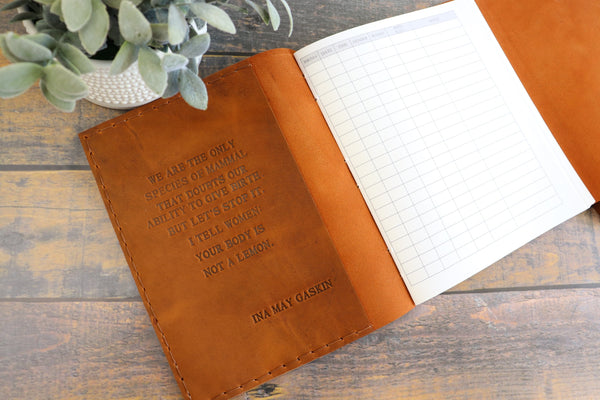 WE ARE THE ONLY
SPECIES OF MAMMAL
THAT DOUBTS OUR
ABILITY TO GIVE BIRTH.
BUT LET'S STOP IT.
I TELL WOMEN:
YOUR BODY IS
NOT A LEMON.
INA MAY GASKIN